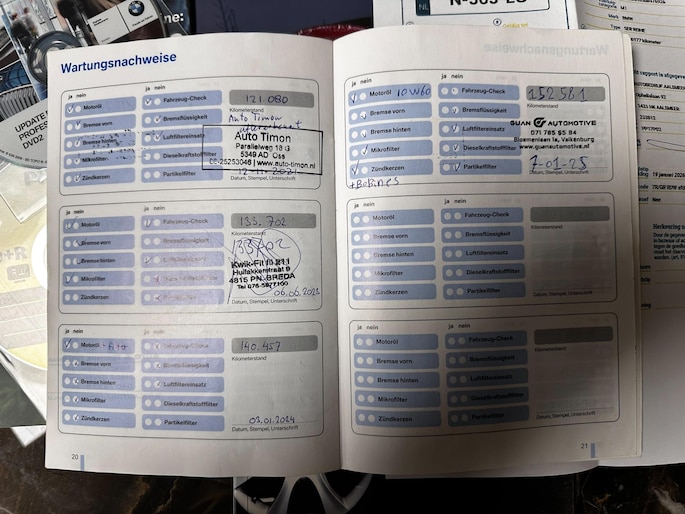 Wartungsnachweise
ja nein
Motoröl
Bremse vorn
Bremse hinten
Mikrofilter
Zündkerzen
Fahrzeug-Check
Bremsflüssigkeit
Luftfiltereinsatz
Dieselkraftstofffilter
Partikelfilter
121.080
Kilometerstand
Auto Timon
Auto Timon
Parallelweg 18 G
5349 AD Oss
www.auto-timon.nl
Datum, Stempel, Unterschrift
ja nein
Motoröl
Bremse vorn
Bremse hinten
Mikrofilter
Zündkerzen
Fahrzeug-Check
Bremsflüssigkeit
Luftfiltereinsatz
Dieselkraftstofffilter
Partikelfilter
133.702
Kwik-Fit
4815 PN BREDA
06.06.2023
Datum, Stempel, Unterschrift
ja nein
Motoröl
Bremse vorn
Bremse hinten
Mikrofilter
Zündkerzen
Fahrzeug-Check
Bremsflüssigkeit
Luftfiltereinsatz
Dieselkraftstofffilter
Partikelfilter
140.457
Kilometerstand
03.01.2024
Datum, Stempel, Unterschrift
20
ja nein
Motoröl 10W60
Bremse vorn
Bremse hinten
Mikrofilter
Zündkerzen
+Bobines
Fahrzeug-Check
Bremsflüssigkeit
Luftfiltereinsatz
Dieselkraftstofffilter
Partikelfilter
152561
Kilometerstand
GUAN AUTOMOTIVE
071 785 55 84
www.guanautomotive.nl
7-01-25
Datum, Stempel, Unterschrift
ja nein
Motoröl
Bremse vorn
Bremse hinten
Mikrofilter
Zündkerzen
Fahrzeug-Check
Bremsflüssigkeit
Luftfiltereinsatz
Dieselkraftstofffilter
Partikelfilter
Kilometerstand
Datum, Stempel, Unterschrift
ja nein
Motoröl
Bremse vorn
Bremse hinten
Mikrofilter
Zündkerzen
Fahrzeug-Check
Bremsflüssigkeit
Luftfiltereinsatz
Dieselkraftstofffilter
Partikelfilter
Kilometerstand
Datum, Stempel, Unterschrift
21
NL